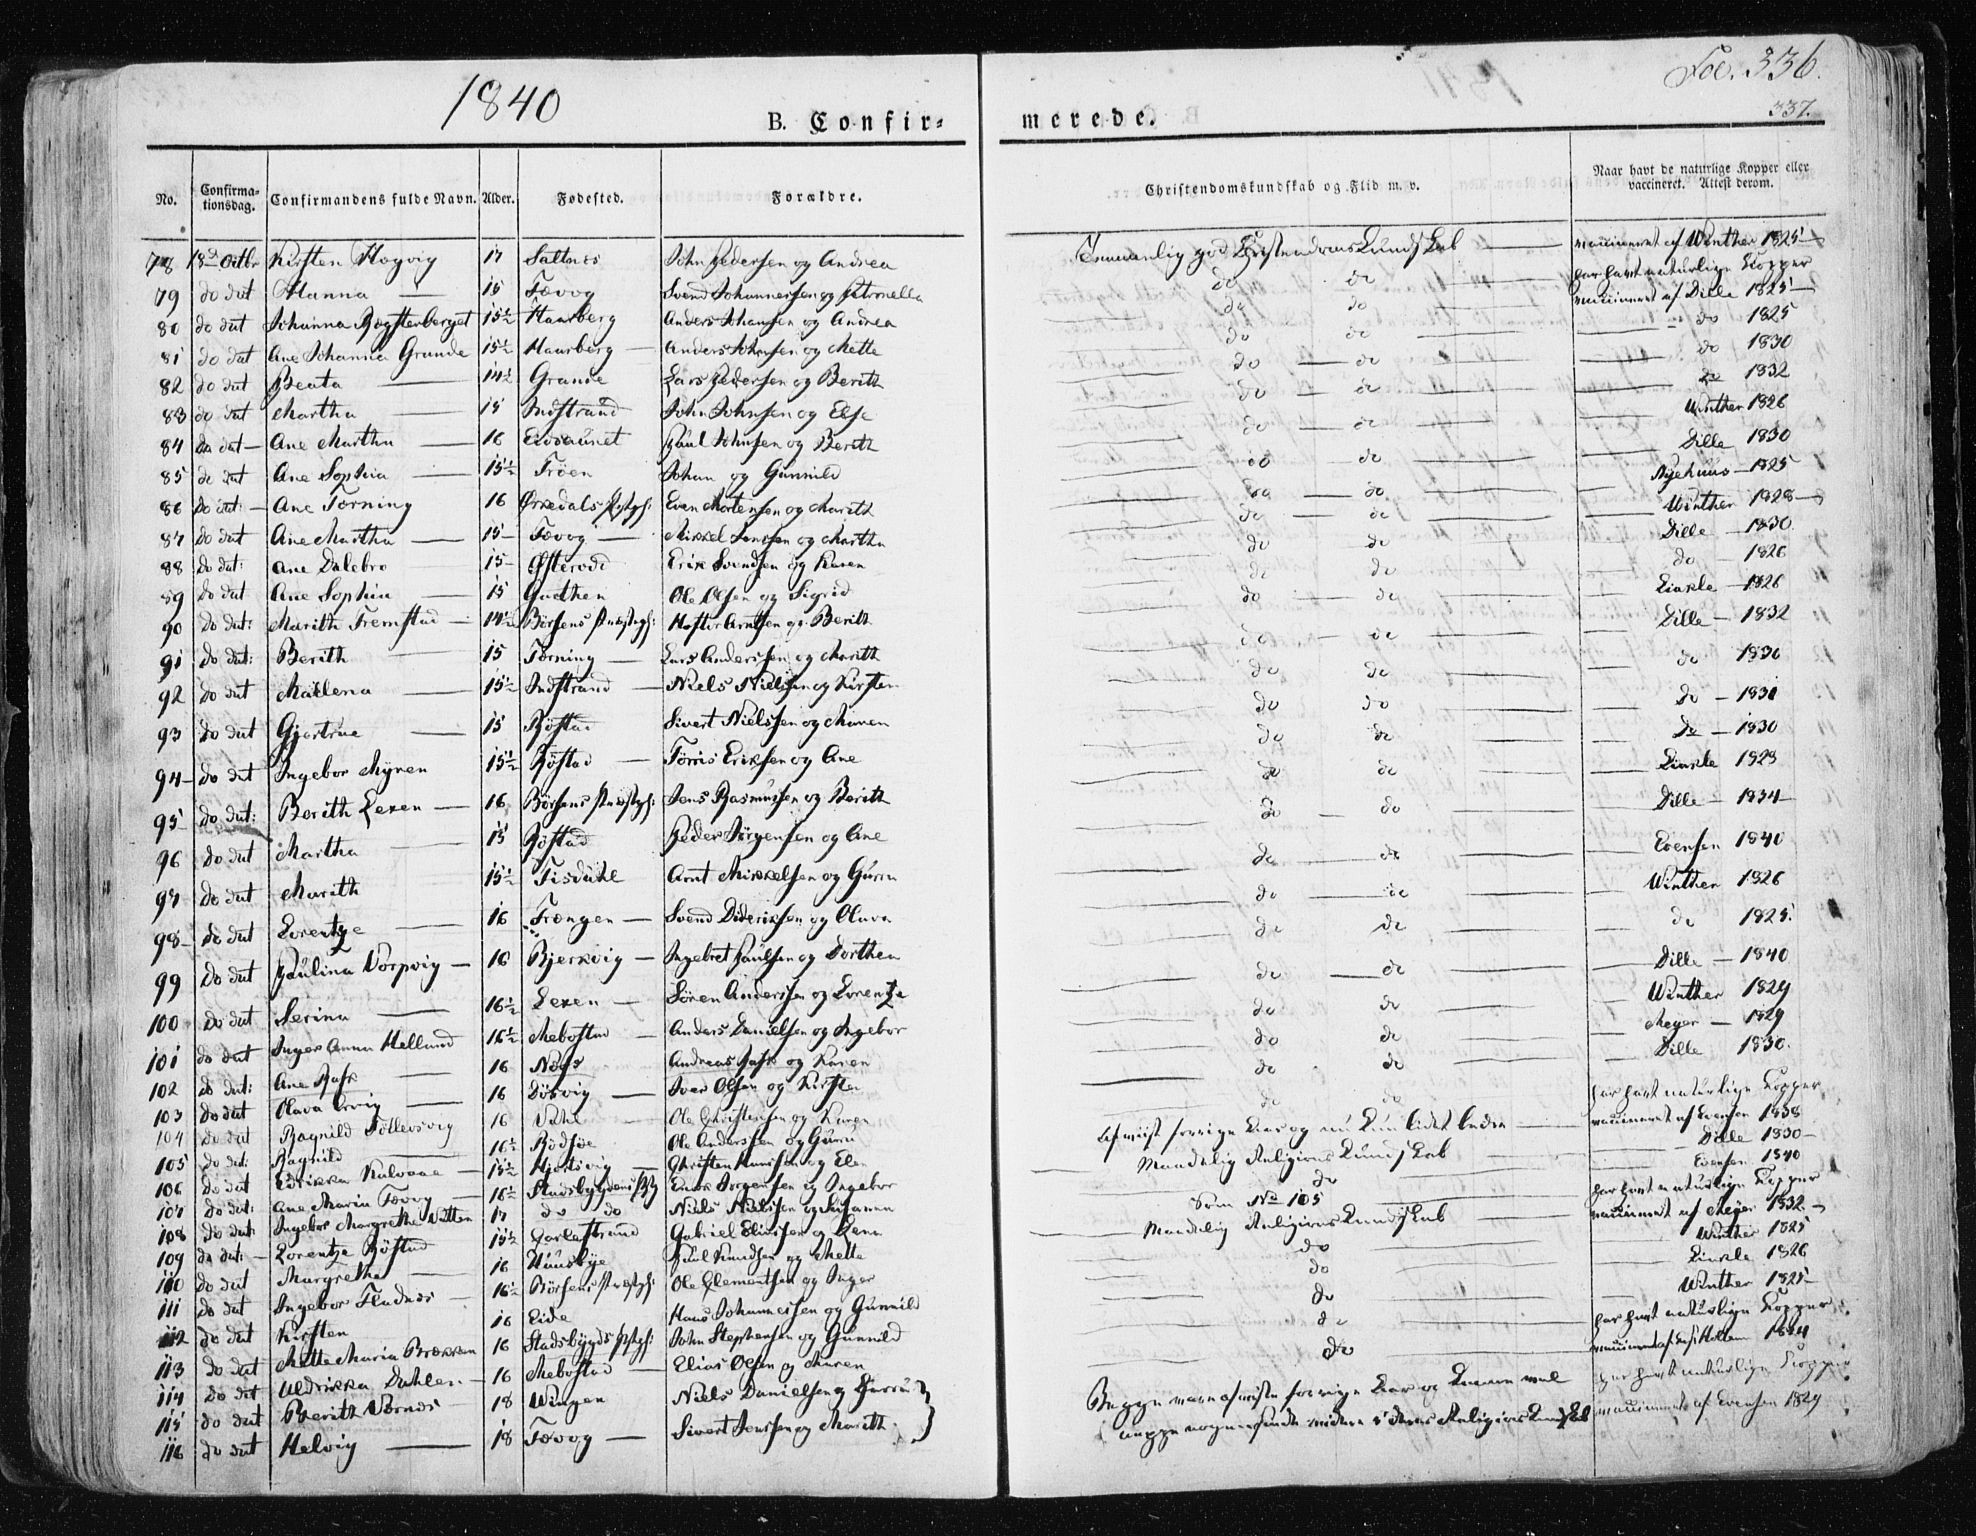 1840
Fol. 336.
337.
B. Confir=
merede.
No. Confirma-tionsdag. Confirmandens fulde Navn. Alder. Fødested. Forældre. Christendomskundskab og Flid m. v. Naar havt de naturlige Kopper eller vaccineret. Attest derom.
78 18de Octbr Kirsten 17 Saltnes John Pedersen og Andrea Temmelig god Christendoms Kundskab vaccineret af Winther 1825
79 do dat Hanna 15 Fævog Svend Johannesen og Petronella do do har havt naturlige Kopper
80 do dat Johanna 15½ Haarberg Anders Johansen og Andrea do do vaccineret af Dille 1825
81 do dat Ane Johanna Grande 15½ Haarberg Anders Johnsen og Mette do do do 1825
82 do dat Beata 14½ Grande Lars Pedersen og Berith do do do 1830
83 do dat Martha 15 Indstrand John Johnsen og Else do do do 1832
84 do dat Ane Martha 16 Paul Johnsen og Berith do do Winther 1826
85 do dat Ane Sophia 15½ Frøen Johan og Gunnild do do Dille 1830
86 do dat Ane Torning 16 Ørkedals Præstgj: Even Mortensen og Marith do do Nyehuus 1825
87 do dat Ane Martha 15 Fævog Mikkel Jenssen og Martha do do Winther 1828
88 do dat: Ane Dalebro 15 Østeraad Erik Svendsen og Karen do do Dille 1830
89 do dat Ane Sophia 15 Ole Olsen og Sigrid do do do 1826
90 do dat: Marith Fremstad 14½ Børsens Præstegj: Arntsen og Berith do do 1826
91 do dat: Berith 15 Torning Lars Anderssen og Marith do do Dille 1832
92 do dat Mallena 15½ Indstrand Niels Nielsen og Kirsten do do do 1830
93 do dat Gjertrue 15 Røstad Sivert Nielssen og Maren do do do 1831
94 do dat Ingebor Myren 15½ Røstad Torris Eriksen og Ane do do do 1830
95 do dat: Berith Lexen 16 Børsens Præstegj: Jens Rasmussen og Berith do do
96 do dat Martha 15 Røstad Peder Jørgensen og Ane do do Dille 1834
97 do dat Marith 15½ Arnt Mikkelsen og Guru do do Evensen 1840
98 do dat Lorentze 16 Trængen Svend Dideriksen og Olava do do Winther 1826
99 do dat Paulina Vorpvig 16 Bjerkvig Ingebret Paulsen og Dorthea do do do 1825
100 do dat Serina 16½ Lexen Sören Anderssen og Lorentze do do Dille 1840
101 do dat Inger Anna Helland 16½ Mebostad Anders Danielsen og Ingebor do do Winther 1829
102 do dat: Ane Rask 16 Andreas Rask og Karen do do Meyer 1829
103 do dat Olava 16 Iver Olsen og Kirsten do do Dille 1830
104 do dat Ragnild 16 Dahl Ole Christensen og Karen do do har havt naturlige Kopper
105 do dat: Ragnild 16½ Rødsøe Ole Anderssen og Guru afviist forrige Aar og nu kun lidet bedre vaccineret af Evensen 1838
106 do dat 15½ Christen Hanssen og Elen Maadelig Religions Kundskab Dille 1830
107 do dat: Ane Maria Fævog 16½ Stadsbygdens Erik Jørgensen og Ingebor do Evensen 1840
108 do dat: Ingebor Margrethe 17 do do Niels Nielssen og Som No 105 har havt naturlige Kopper
109 do dat: Lorentze Røstad 15½ Garlestrand Gabriel Eliassen og Lena Maadelig Religions Kundskab vaccineret af Meyer 1832
110 do dat Margrethe 16 Huusbye Paul Knudsen og Mette do Winther 1825
111 do dat Ingebor Fladnes 16½ Børsens Præstegj: Ole Clementsen og Inger do 1826
112 do dat Kirsten 16 Eide Hans Johannessen og Gunnild do Winther 1825
113 do dat Mette Maria Brækken 16 Stadsbygds Prstgj: John Stephensen og Gunnild do har havt naturlige Kopper
114 do dat Uldrikka Dahlen 16 Mebostad Elias Olsen og Maren do
115 do dat Berith 18 Wingen Niels Danielsen og Guru Begge vare afviiste forrige Aar og har havt naturlige Kopper
116 do dat Helvig 18 Fævog Sivert Jenssen og Marith deres Religions Kundskab vaccineret af Evensen 1829